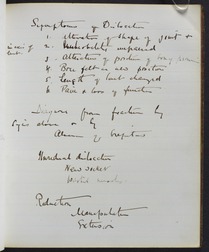 Symptoms of Dislocation
1. alteration of shape of joint &
2. Mobility impaired
3. Alteration of position of
4. Bone felt in new position
5. Length of limb changed
6. Pain & loss of function
from fracture by
signs above & by
Absence of Crepitus
Unreduced dislocation
New socket
Reduction
Manipulation
Extension